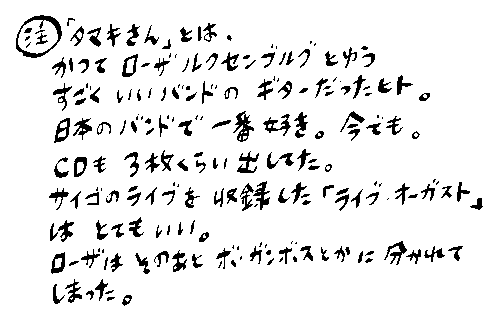 注 「タマキさん」とは、
かつて ローザルクセンブルグ とゆう
すごく いいバンドの ギターだったヒト。
日本のバンドで 一番 好き。今でも。
CDも 3枚くらい出してた。
サイゴのライブを 収録した「ライブ・オーガスト」
は とてもいい。
ローザは そのあと ボ・ガンボスとかに 分かれて
しまった。